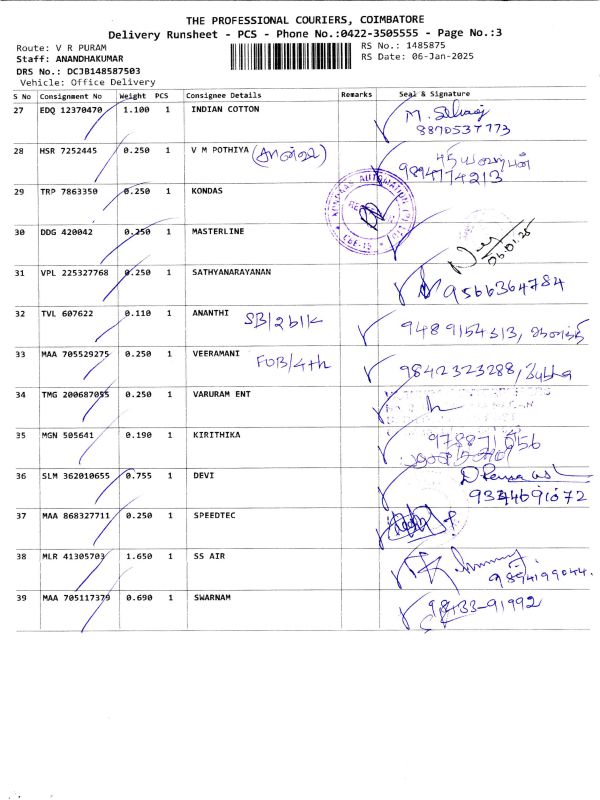 THE PROFESSIONAL COURIERS, COIMBATORE
Delivery Runsheet - PCS - Phone No.:0422-3505555 - Page No.:3
Route: V R PURAM
RS No.: 1485875
Staff: ANANDHAKUMAR
RS Date: 06-Jan-2025
DRS No.: DCJB148587503
Vehicle: Office Delivery
S No Consignment No Weight PCS Consignee Details Remarks Seal & Signature
27 EDQ 12370470 1.100 1 INDIAN COTTON
8870537773
28 HSR 7252445 0.250 1 V M POTHIYA
9894774213
29 TRP 7863350 0.250 1 KONDAS
30 DDG 420042 0.250 1 MASTERLINE
06.01.25
31 VPL 225327768 0.250 1 SATHYANARAYANAN 9566364784
32 TVL 607622 0.110 1 ANANTHI SB/2 blk 9489154313,
33 MAA 705529275 0.250 1 VEERAMANI FOB/4th 9842323288, Subha
34 TMG 200687055 0.250 1 VARURAM ENT
35 MGN 505641 0.190 1 KIRITHIKA
36 SLM 362010655 0.755 1 DEVI
9344691072
37 MAA 868327711 0.250 1 SPEEDTEC
38 MLR 41305703 1.650 1 SS AIR
9894199044.
39 MAA 705117379 0.690 1 SWARNAM 98433-91992